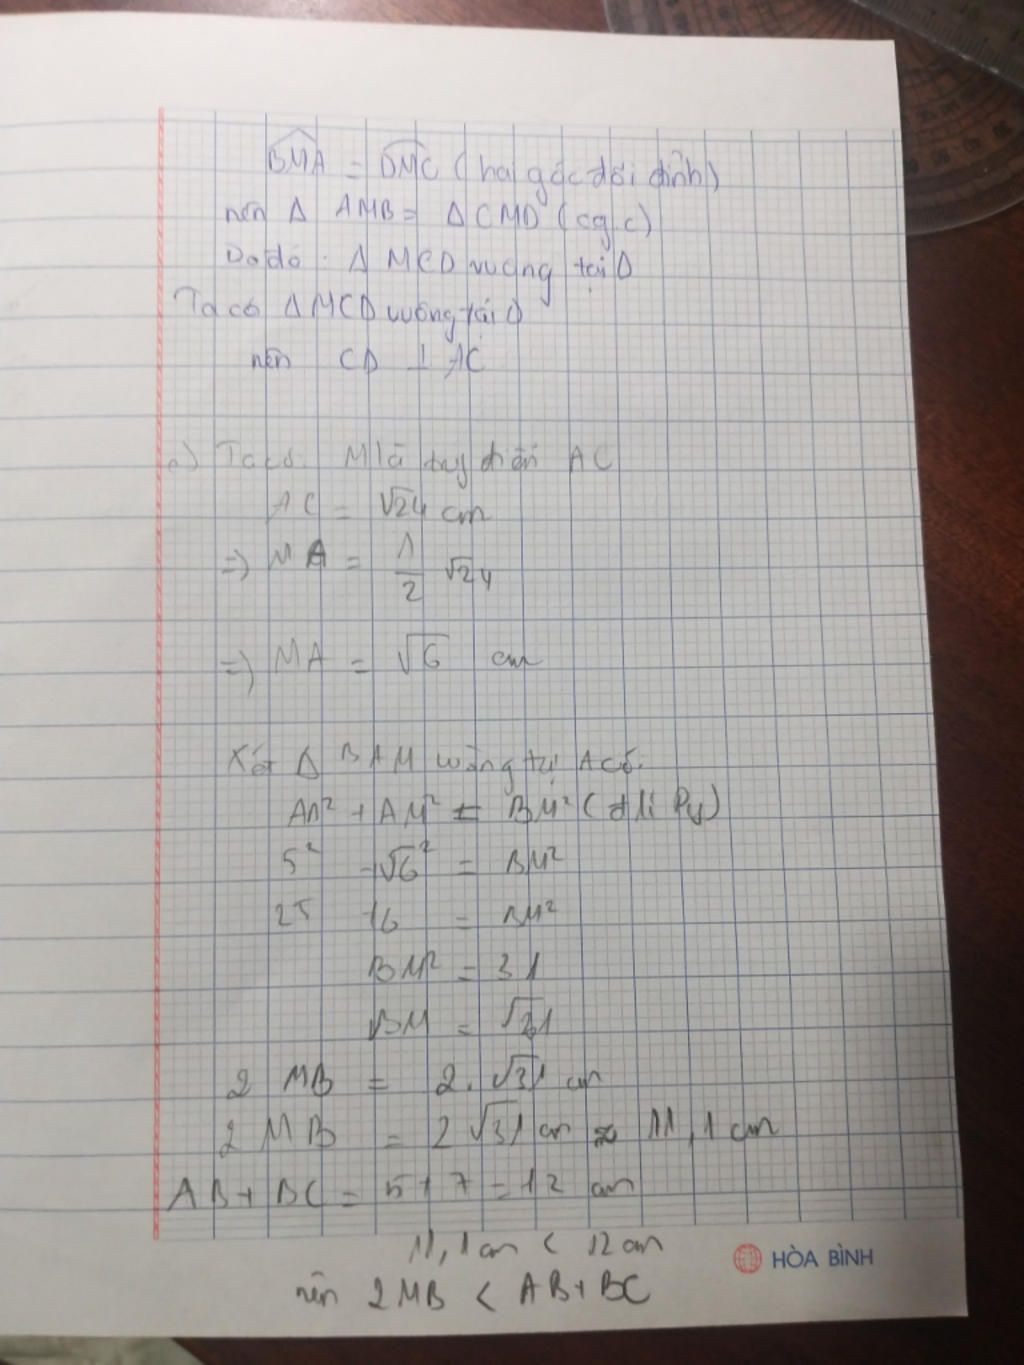 BMA = DMC (hai góc đối đỉnh)
nên Δ AMB = Δ CMD (c.g.c)
Do đó: Δ MCD vuông tại D
Ta có Δ MCD vuông tại D
nên CD ⊥ AC
c) Ta có: M là trung điểm AC
AC = √24 cm
=> MA = 1/2 √24
=> MA = √6 cm
Xét Δ BAM vuông tại A có:
AB² + AM² = BM² (đ lí Py)
5² + √6² = BM²
25 + 6 = BM²
BM² = 31
BM = √31
2 MB = 2. √31 cm
2 MB = 2√31 cm ≈ 11,1 cm
AB + BC = 5 + 7 = 12 cm
11,1 cm < 12 cm
HÒA BÌNH
nên 2MB < AB + BC